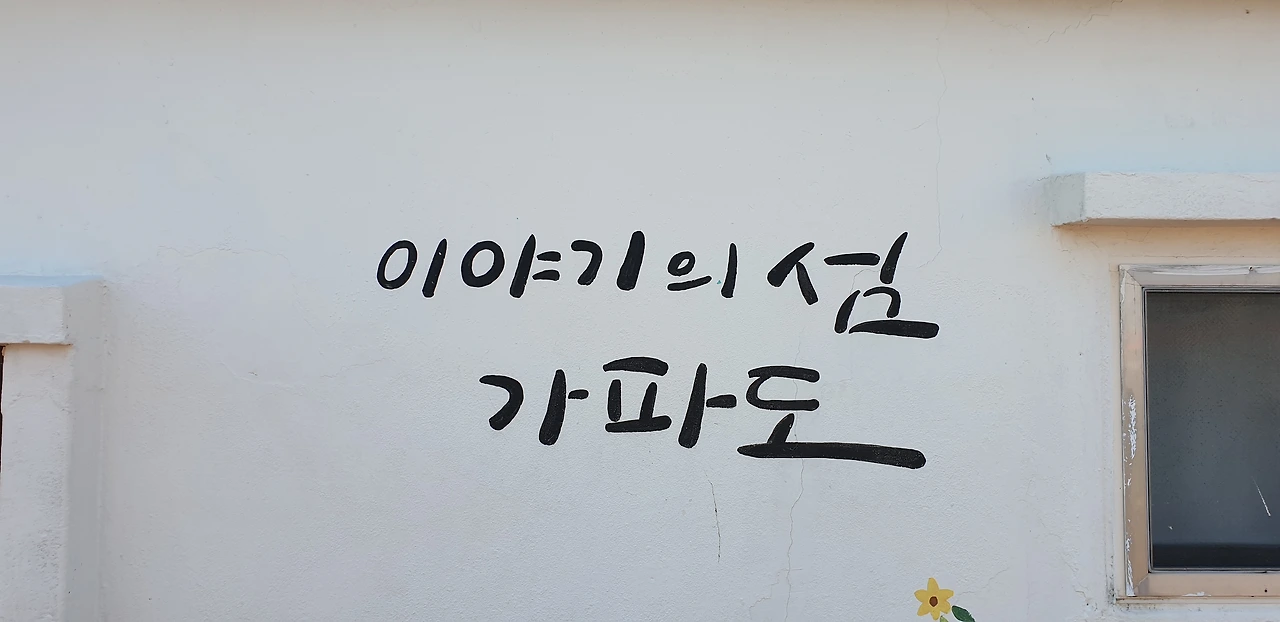 이야기의 섬
가파도